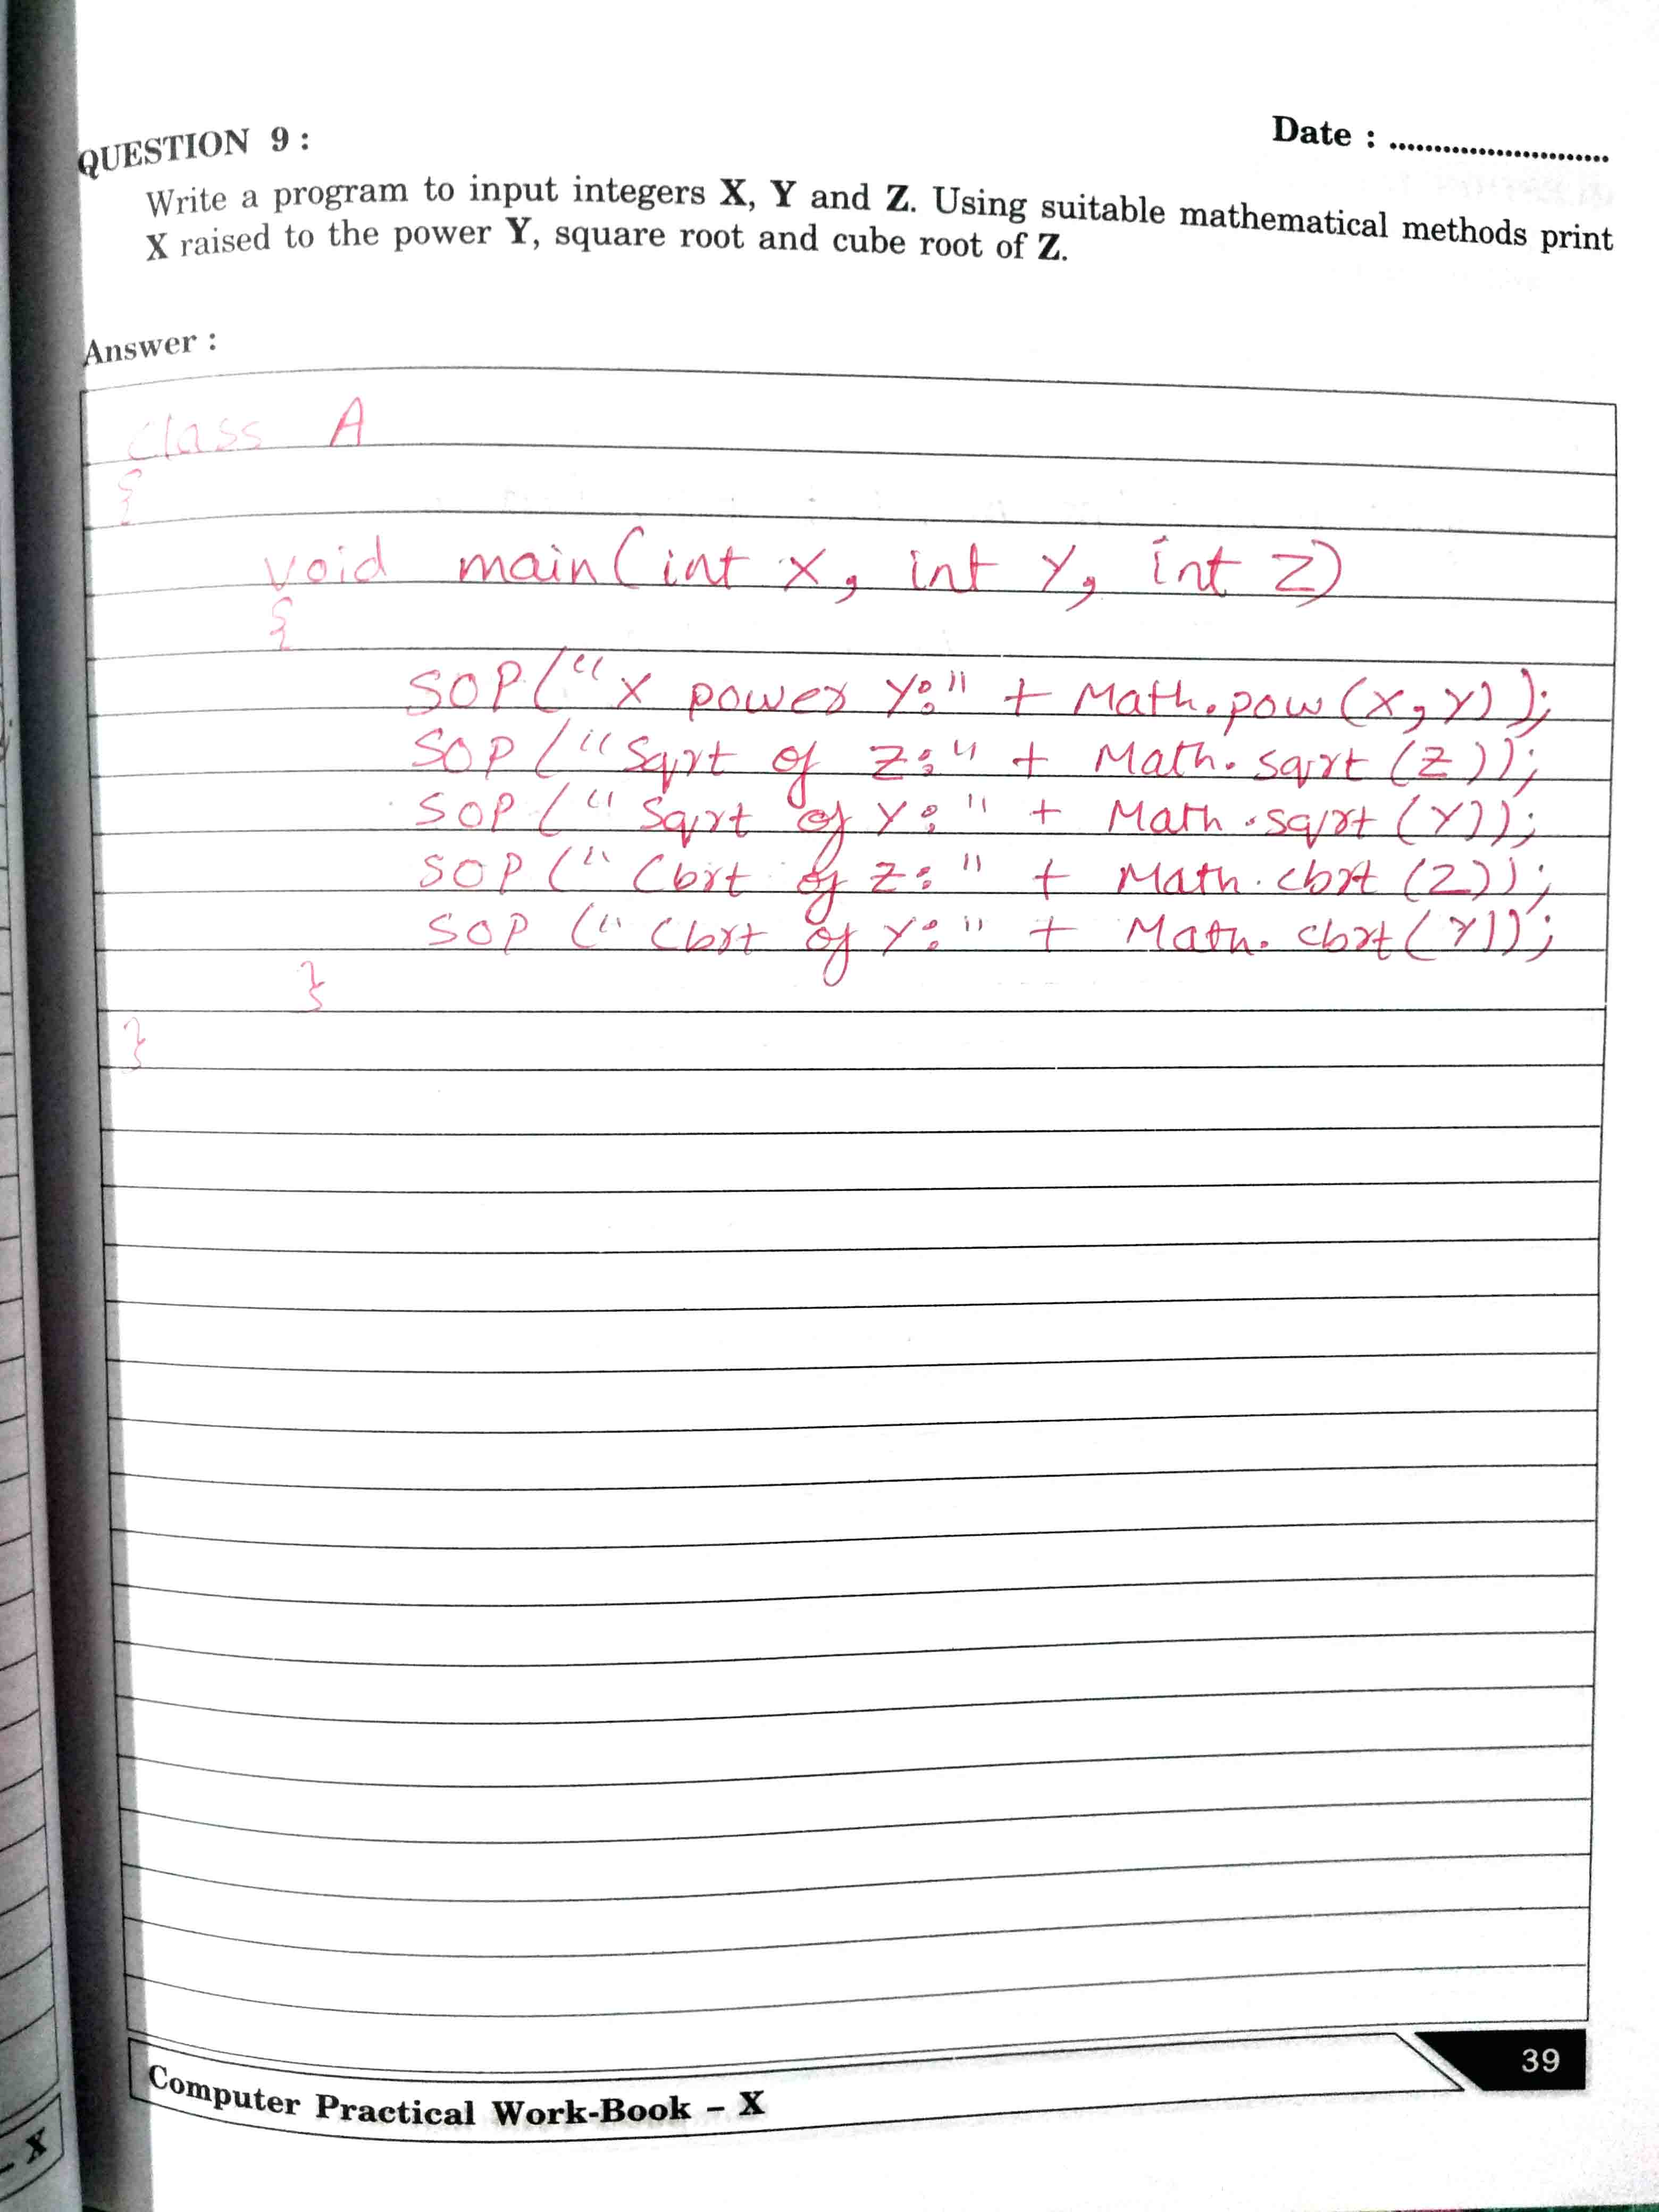 QUESTION 9 :
Date : ..........................
Write a program to input integers X, Y and Z. Using suitable mathematical methods print
X raised to the power Y, square root and cube root of Z.
Answer :
class A
{
void main(int X, int Y, int Z)
{
SOP("X power Y:" + Math.pow(X,Y));
SOP("Sqrt of Z:" + Math.sqrt(Z));
SOP("Sqrt of Y:" + Math.sqrt(Y));
SOP("Cbrt of Z:" + Math.cbrt(Z));
SOP("Cbrt of Y:" + Math.cbrt(Y));
}
}
Computer Practical Work-Book – X
39
– X